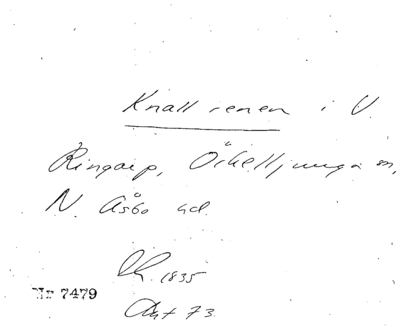 Knallrenen i V.
Ringarp, Örkelljunga sn,
N. Åsbo hd.
1835
Nr 7479
Ant 73